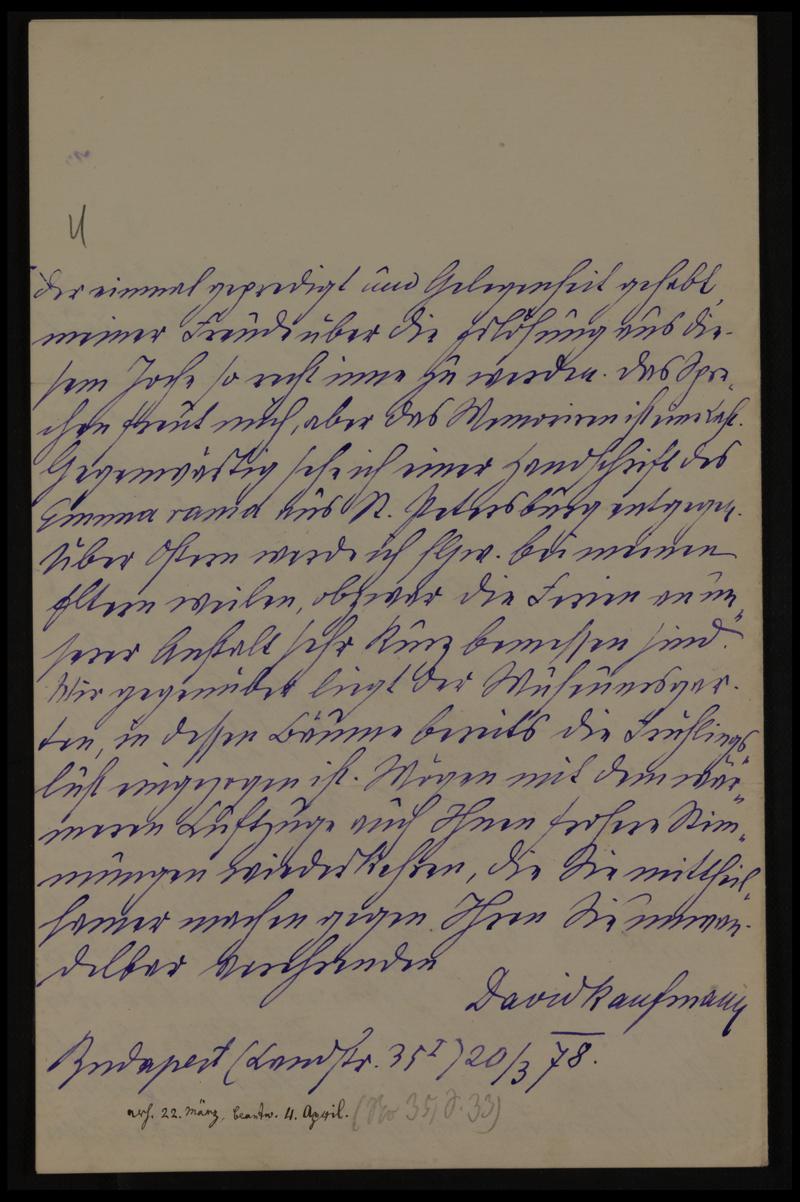 4
der einmal gepredigt und Gelegenheit gehabt,
meiner Freude über die Erlösung aus die-
sem Joche so recht inne zu werden. Das Spre-
chen freut mich, aber das Memoriren ist eine Last.
Gegenwärtig sehe ich einer Handschrift des
Emuna rama aus St. Petersburg entgegen.
Über Ostern werde ich bei meinen
Eltern weilen, obzwar die Ferien an un-
serer Anstalt sehr kurz bemessen sind.
Mir gegenüber liegt der Museumsgar-
ten, in dessen Bäume bereits die Frühlings
lust eingezogen ist. Mögen mit dem wär-
meren Luftzuge auch Ihnen frohere Stim-
mungen wiederkehren, die Sie mittheil-
samer machen gegen Ihren Sie unwan-
delbar verehrenden
David Kaufmann
Budapest (Landstr. 35 I) 20/3 78.
erh. 22. März, beantw. 4. April. (No 35, S. 33)